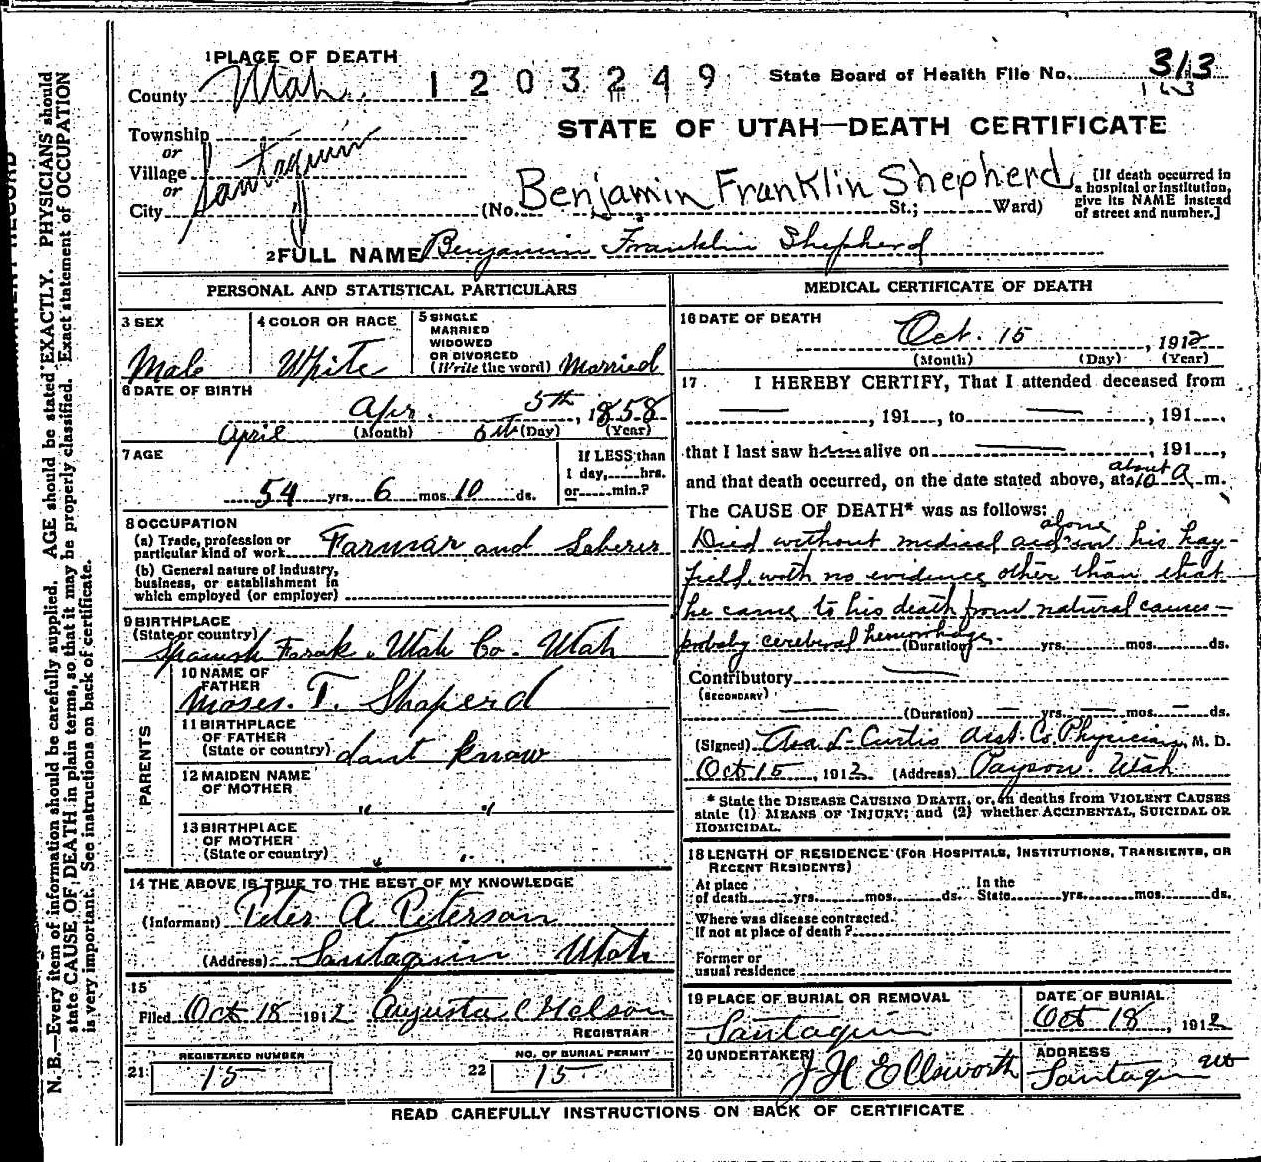 1 PLACE OF DEATH
County Utah
1203249
State Board of Health File No. 313
STATE OF UTAH—DEATH CERTIFICATE
Township
or
Village
or
City Santaquin
(No. Benjamin Franklin Shepherd St.; Ward)
[If death occurred in
a hospital or institution,
give its NAME instead
of street and number.]
2 FULL NAME Benjamin Franklin Shepherd
PERSONAL AND STATISTICAL PARTICULARS
3 SEX
Male
4 COLOR OR RACE
White
5 SINGLE
MARRIED
WIDOWED
OR DIVORCED
(Write the word) Married
6 DATE OF BIRTH
Apr. 5th, 1858
April (Month) 6th (Day) (Year)
7 AGE
54 yrs. 6 mos. 10 ds.
If LESS than
1 day, hrs.
or min.?
8 OCCUPATION
(a) Trade, profession or
particular kind of work Farmar and Laberer
(b) General nature of Industry,
business, or establishment in
which employed (or employer)
9 BIRTHPLACE
(State or country)
Spanish Farak, Utah Co. Utah
PARENTS
10 NAME OF
FATHER
Moses. T. Shaperd
11 BIRTHPLACE
OF FATHER
(State or country) dont know
12 MAIDEN NAME
OF MOTHER
" "
13 BIRTHPLACE
OF MOTHER
(State or country) " "
14 THE ABOVE IS TRUE TO THE BEST OF MY KNOWLEDGE
(Informant) Peter A Peterson
(Address) Santaquin Utah
15
Filed Oct 18 1912 Augusta C Nelson
REGISTRAR
21 REGISTERED NUMBER
15
22 NO. OF BURIAL PERMIT
15
MEDICAL CERTIFICATE OF DEATH
16 DATE OF DEATH
Oct. 15, 1912
(Month) (Day) (Year)
17. I HEREBY CERTIFY, That I attended deceased from
—, 191—, to —, 191—,
that I last saw him alive on —, 191—,
about
and that death occurred, on the date stated above, at 10 A. m.
The CAUSE OF DEATH* was as follows:
alone
Died without medical aid in his hay-
field with no evidence other than that
he came to his death from natural causes—
probably cerebral hemorrhage. (Duration) yrs. mos. ds.
Contributory —
(SECONDARY)
— (Duration) — yrs. — mos. — ds.
(Signed) Asa L. Curtis Asst. Co. Physician, M. D.
Oct 15, 1912 (Address) Payson. Utah
* State the DISEASE CAUSING DEATH, or, in deaths from VIOLENT CAUSES
state (1) MEANS OF INJURY; and (2) whether ACCIDENTAL, SUICIDAL OR
HOMICIDAL.
18 LENGTH OF RESIDENCE (FOR HOSPITALS, INSTITUTIONS, TRANSIENTS, OR
RECENT RESIDENTS)
At place
of death yrs. mos. ds. In the
State yrs. mos. ds.
Where was disease contracted
If not at place of death?
Former or
usual residence
19 PLACE OF BURIAL OR REMOVAL
Santaquin
DATE OF BURIAL
Oct 18, 1912
20 UNDERTAKER
J H Ellsworth
ADDRESS
Santaquin Ut
READ CAREFULLY INSTRUCTIONS ON BACK OF CERTIFICATE
N. B.—Every item of information should be carefully supplied. AGE should be stated EXACTLY. PHYSICIANS should
state CAUSE OF DEATH in plain terms, so that it may be properly classified. Exact statement of OCCUPATION
is very important. See instructions on back of certificate.